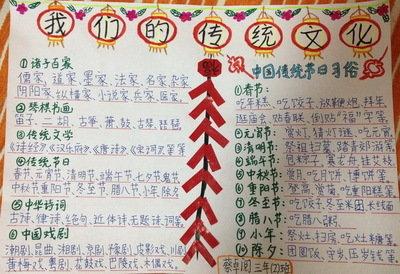 我们的传统文化
①诸子百家
儒家、道家、墨家、法家、名家、杂家、
阴阳家、纵横家、小说家、兵家、医家。
②琴棋书画
笛子、二胡、古筝、萧、鼓、古琴、琵琶
③传统文学
《诗经》、《汉乐府》、《唐诗》、《宋词》等等
④传统节日
春节、元宵节、清明节、端午节、七夕节、鬼节
中秋节、重阳节、冬至节、腊八节、小年、除夕
⑤中华诗词
古诗、律诗、绝句、近体诗、无题诗、词
⑥中国戏剧
湘剧、昆曲、湘剧、京剧、皮影戏、川剧
黄梅戏、粤剧、花鼓戏、巴陵戏、木偶戏。
中国传统节日习俗
①春节：
吃年糕、吃饺子、放鞭炮、拜年
逛庙会、贴春联、倒贴“福”字等
②元宵节：赏灯、猜灯谜、吃元宵
③清明节：祭祖扫墓、踏青郊游等
④端午节：包粽子、赛龙舟、挂艾枝
⑤中秋节：赏月、吃月饼、博饼等
⑥重阳节：登高、赏菊、吃重阳糕等
⑦冬至节：吃饺子、冬至米团、长线面
⑧腊八节：吃腊八粥、
⑨小年：祭灶、扫房、吃灶糖等
⑩除夕：团圆饭、守岁、压岁钱等
三年(2)班